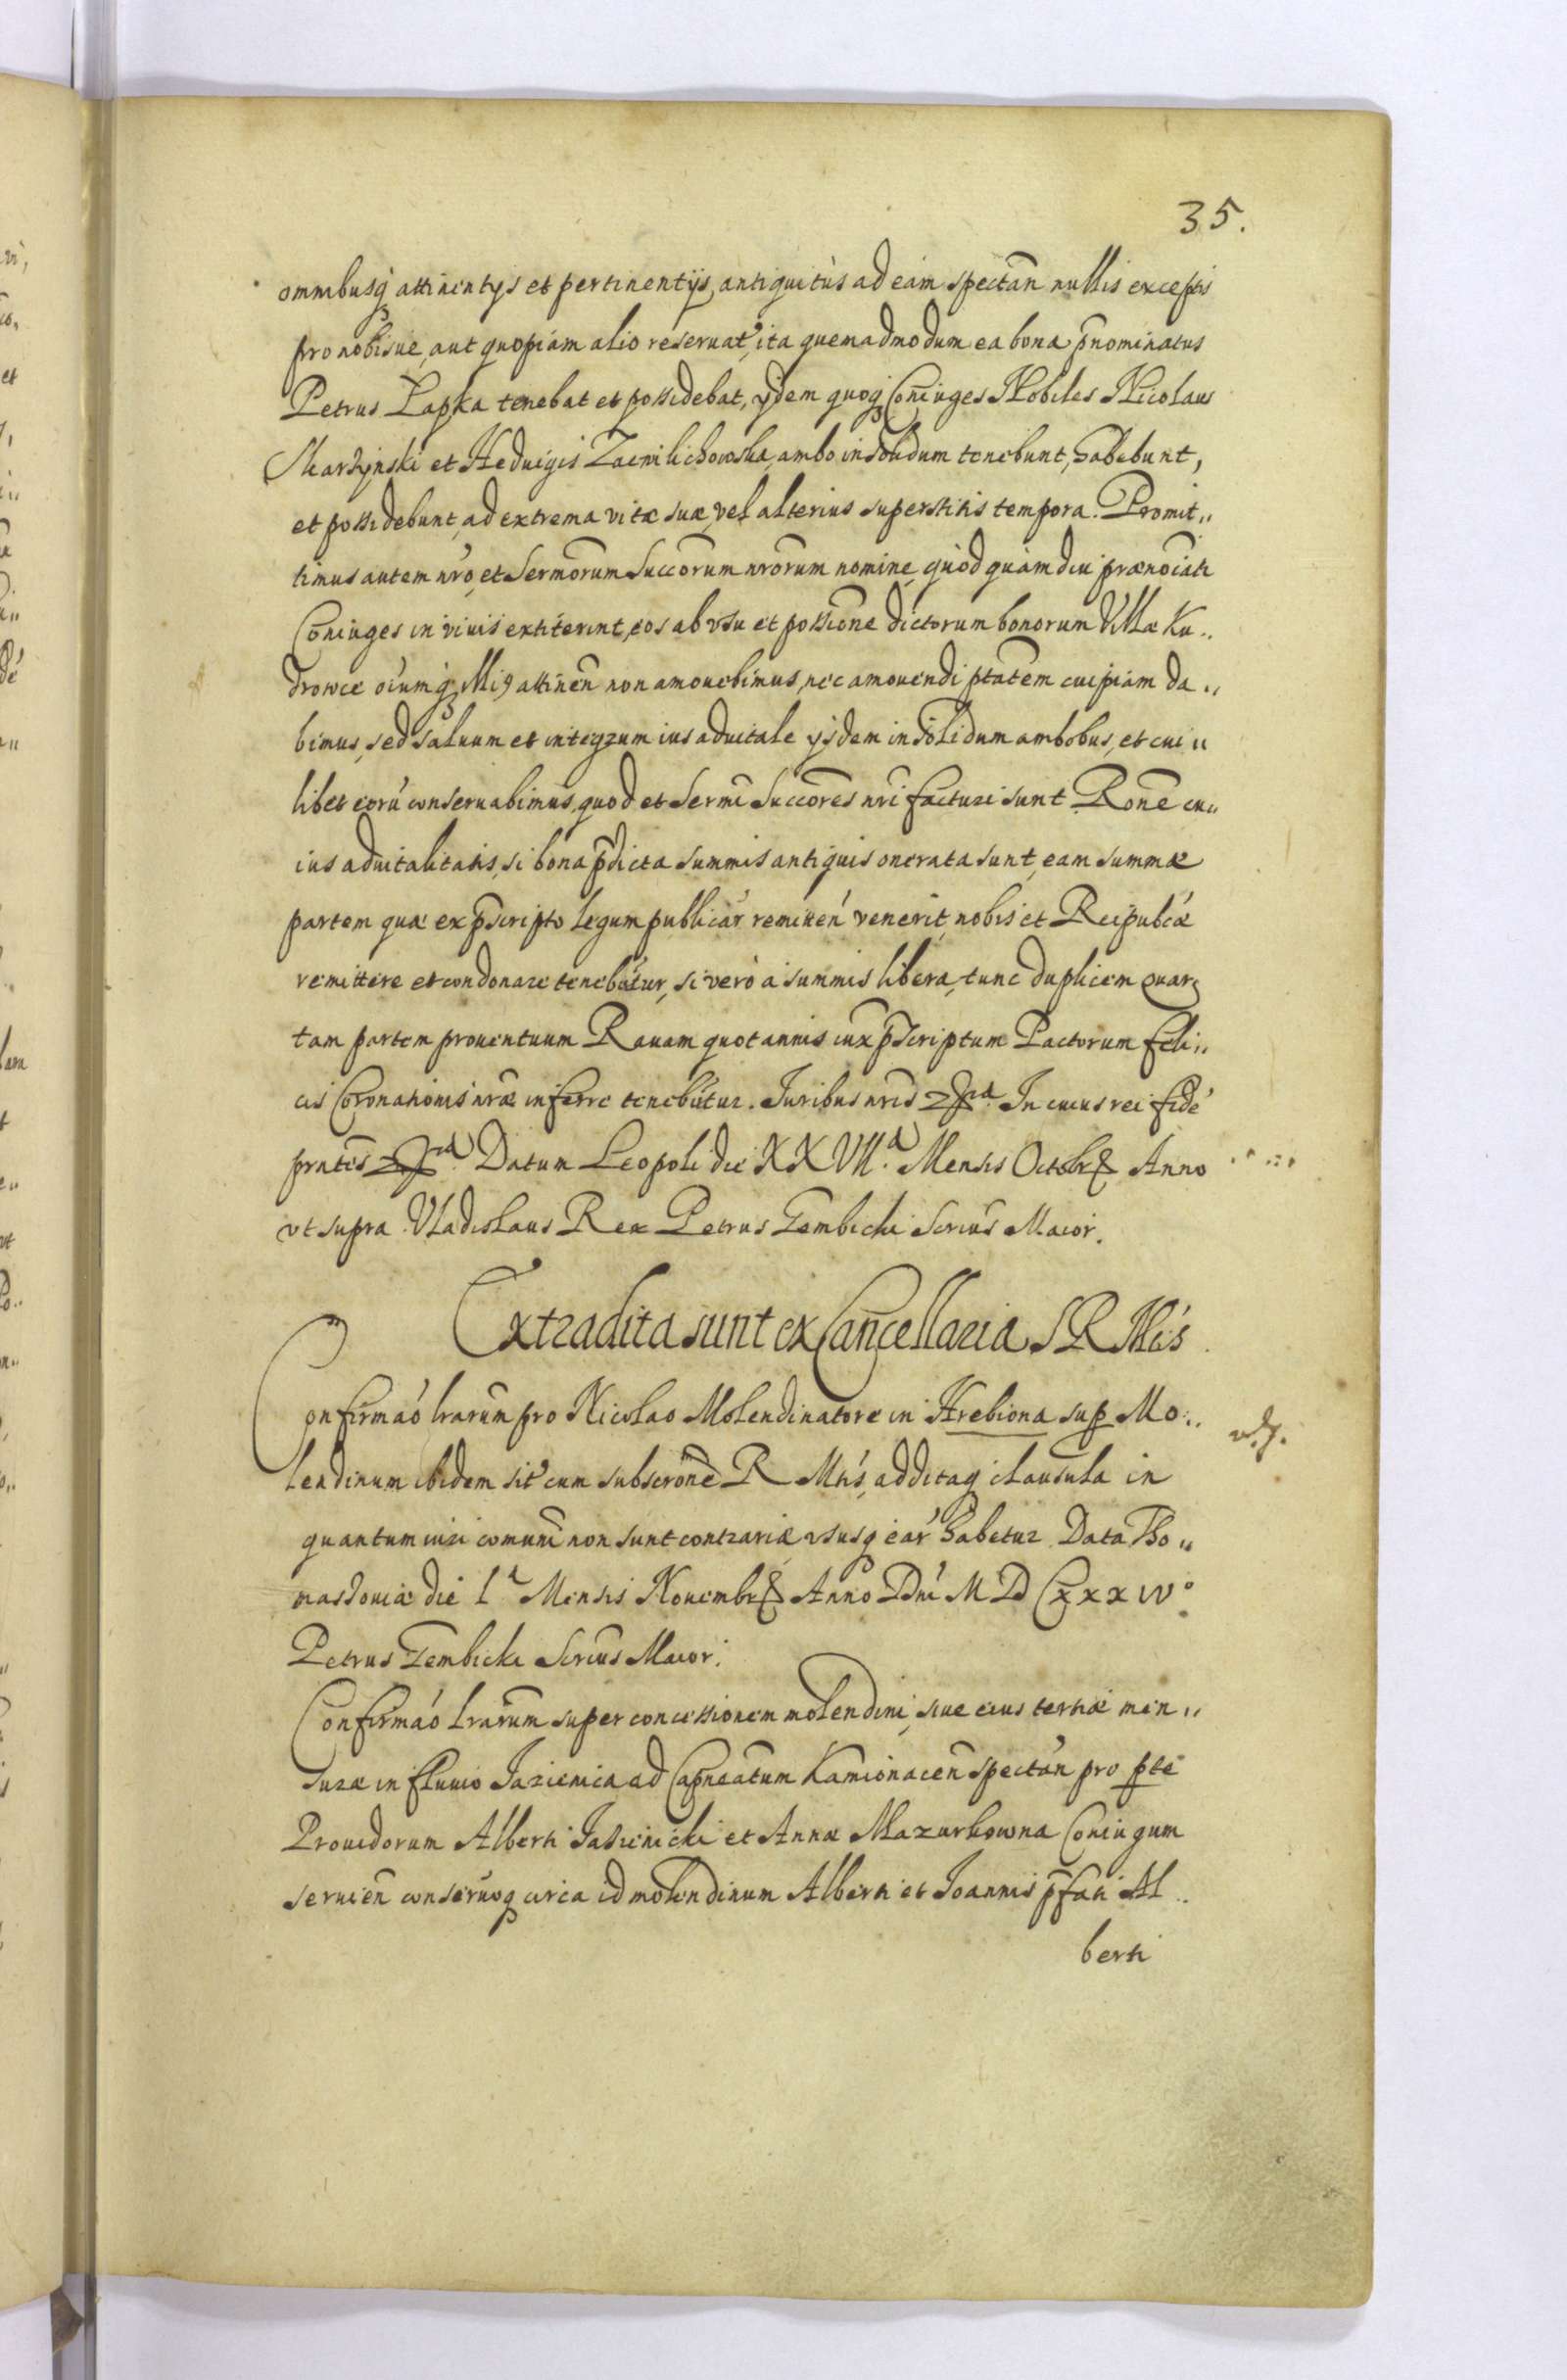 35.
omnibusq́ attinentijs et pertinentijs, antiquitùs ad eam spectañ nullis exceptis
pro nobisue, aut quopiam alio reseruat̓, ita quemadmodum ea bona p̄nominatus
Petrus Łapka tenebat et possidebat, ijdem quoq́ Coniuges Nobiles Nicolaus
Skarżynski et Heduigis Zaćwilichowska, ambo in solidum tenebunt, habebunt,
et possidebunt, ad extrema vitæ suæ, vel alterius superstitis tempora. Promit„
timus autem nr̃o, et Sermõrum Succõrum nrõrum nomine, quòd quàm diu prænoĩati
Coniuges in viuis extiterint, eos ab vsu et possiõne dictorum bonorum Villæ Ku„
drowce oĩumq́ illiꝰ attineñ non amouebimus, nec amouendi ptãtem cuipiam da„
bimus, sed saluum et integrum ius aduitale ijsdem in solidum ambobus, et cui„
libet eorú conseruabimus, quod et Sermĩ Succõres nrĩ facturi sunt. Rõne cu„
ius aduitalitatis, si bona p̄dicta summis antiquis onerata sunt, eam summæ
partem quæ ex p̄scripto legum publicar̓ remitteń venerit, nobis et Reipublcæ
remittere et condonare tenebútur, si verò à summis libera, tunc duplicem quar„
tam partem prouentuum Rauam quotannis iux̃ p̄scriptum Pactorum feli„
cis Coronationis nr̃æ inferre tenebútur. Juribus nrĩs &ra. In cuius rei fidé
prñtes &ra. Datum Leopoli die XXVII.a Mensis Octobrꝭ Anno
vt supra. Vladislaus Rex Petrus Gembicki Scrius Maior.
Extradita sunt ex Cancellaria S R Mtis.
Confirmáo lrarũm pro Nicolao Molendinatore in Hrebiona sup Mo„
lendinum ibidem sit̓ cum subscrõne R Mtis, additaq́ clausula in
quantum iuri comuni non sunt contrariæ vsusq́ ear̓ habetur. Data Tho„
masżouiæ die 1a Mensis Nouembrꝭ Anno Dni M D CXXXIVo
Petrus Gembicki Scrius Maior.
Confirmáo lrarũm super concessionem molendini, siue eius tertiæ men„
suræ in fluuio Jazienica ad Capneãtum Kamionaceñ spectáń pro pte
Prouidorum Alberti Jasienicki et Annæ Mazurkowna Coniugum
seruieñ conseruoq́ circa id molendinum Alberti et Joannis p̄fati Al„
berti